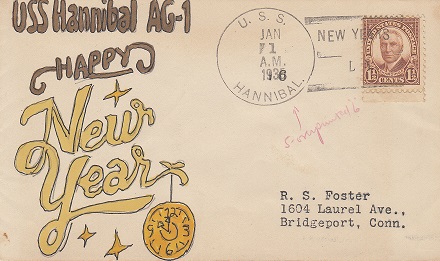 USS Hannibal AG-1
HAPPY
New
Year
U. S. S.
JAN
1
A.M.
1936
HANNIBAL.
NEW YEARS
1½ CENTS 1½
R. S. Foster
1604 Laurel Ave.,
Bridgeport, Conn.